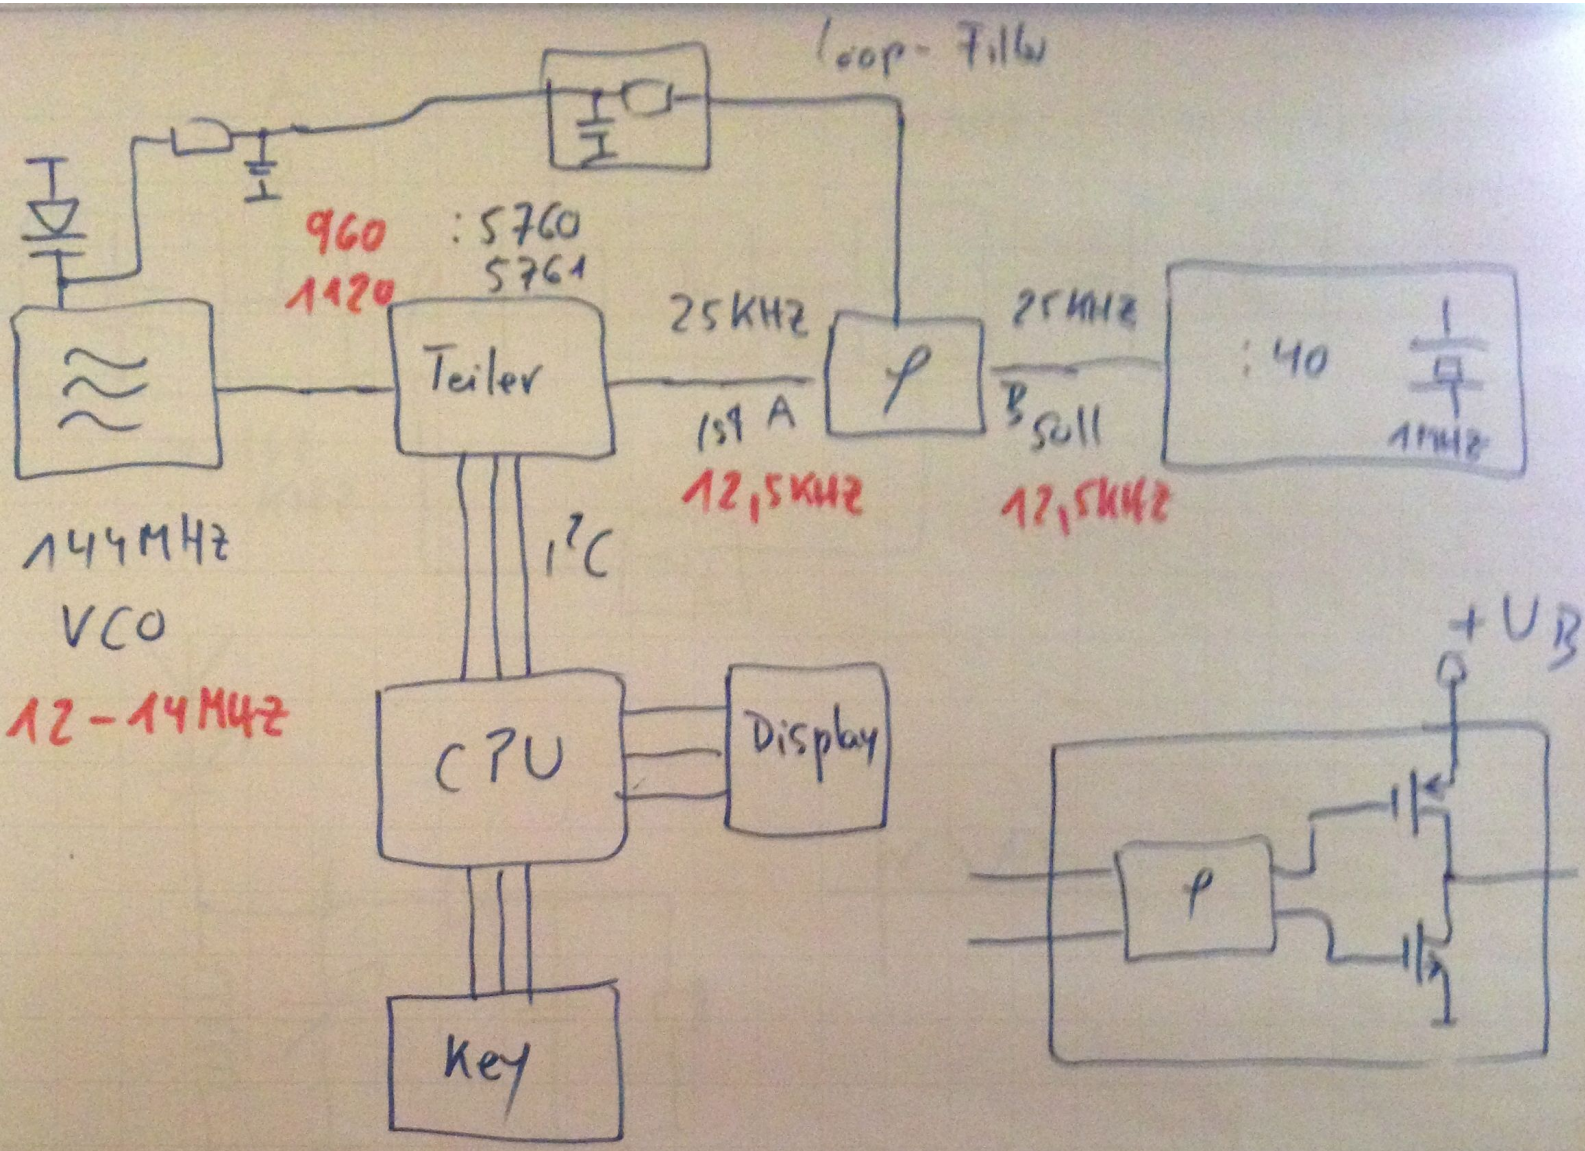 Loop-Filter
960 :5760
1120 5761
Teiler
25KHZ
Ist A
12,5KHZ
φ
25KHZ
B Soll
12,5KHZ
:40
1MHZ
144MHz
VCO
12-14MHZ
I²C
CPU
Display
Key
+UB
φ